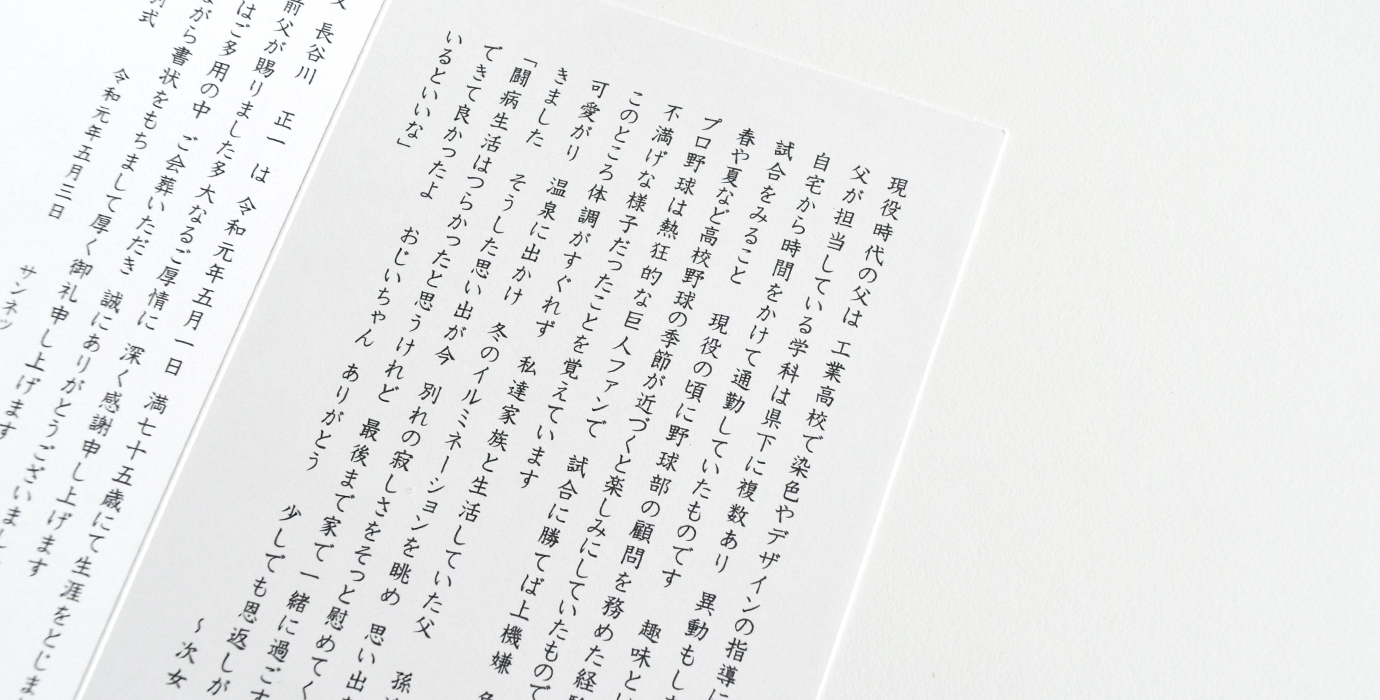 現役時代の父は 工業高校で染色やデザインの指導に
父が担当している学科は県下に複数あり 異動もし
自宅から時間をかけて通勤していたものです 趣味とい
試合をみること 現役の頃に野球部の顧問を務めた経
春や夏など高校野球の季節が近づくと楽しみにしていたもので
プロ野球は熱狂的な巨人ファンで 試合に勝てば上機嫌
不満げな様子だったことを覚えています
このところ体調がすぐれず 私達家族と生活していた父 孫
可愛がり 温泉に出かけ 冬のイルミネーションを眺め 思い出
きました そうした思い出が今 別れの寂しさをそっと慰めてく
「闘病生活はつらかったと思うけれど 最後まで家で一緒に過ごす
できて良かったよ おじいちゃん ありがとう 少しでも恩返しが
いるといいな」
〜次女
長谷川 正一 は 令和元年五月一日 満七十五歳にて生涯をとじま
前父が賜りました多大なるご厚情に 深く感謝申し上げます
はご多用の中 ご会葬いただき 誠にありがとうございまし
がら書状をもちまして厚く御礼申し上げます
令和元年五月三日
式
サンネッ